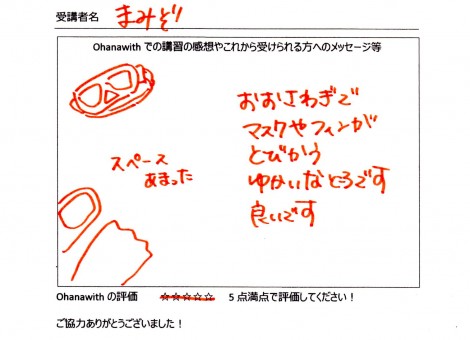 受講者名 まみぞり
Ohanawith での講習の感想やこれから受けられる方へのメッセージ等
おおさわぎで
マスクやフィンが
とびかう
ゆかいなところです
良いです
スペース
あまった
Ohanawith の評価 ☆☆☆☆☆ 5 点満点で評価してください！
ご協力ありがとうございました！